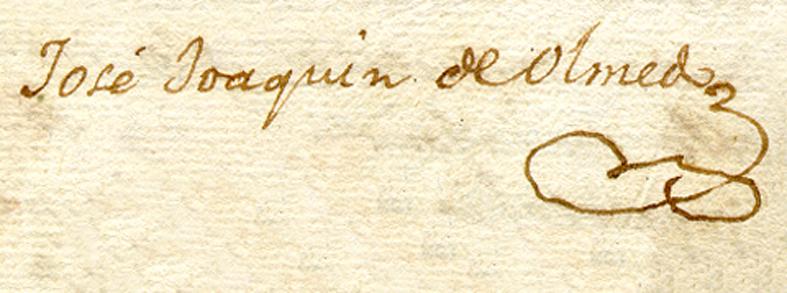 José Joaquin de Olmedo